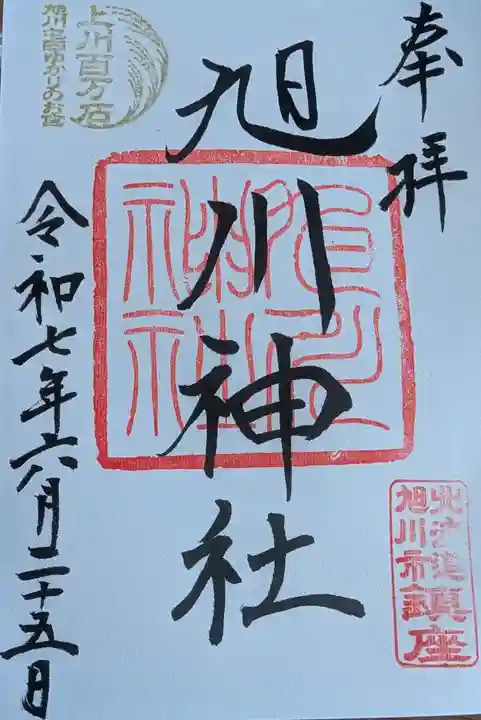 奉拝
旭川神社
令和七年六月二十五日
上川百万石
旭川
のお社
旭川神社
北海道
旭川市
鎮座